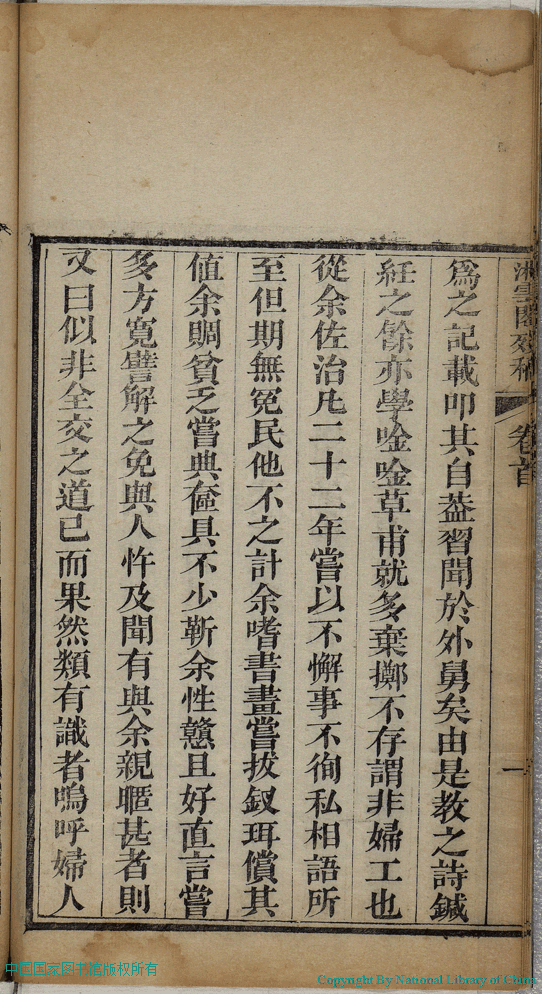 卷首
一
爲之記載叩其自葢習聞於外舅矣由是教之詩鍼
紝之餘亦學唫唫草甫就多棄擲不存謂非婦工也
從余佐治凡二十二年嘗以不懈事不徇私相語所
至但期無冤民他不之計余嗜書畫嘗拔釵珥償其
値余賙貧乏嘗典奩具不少靳余性戇且好直言嘗
多方寬譬解之免與人忤及聞有與余親暱甚者則
又曰似非全交之道已而果然類有識者嗚呼婦人
中国国家图书馆版权所有
Copyright By National Library of China